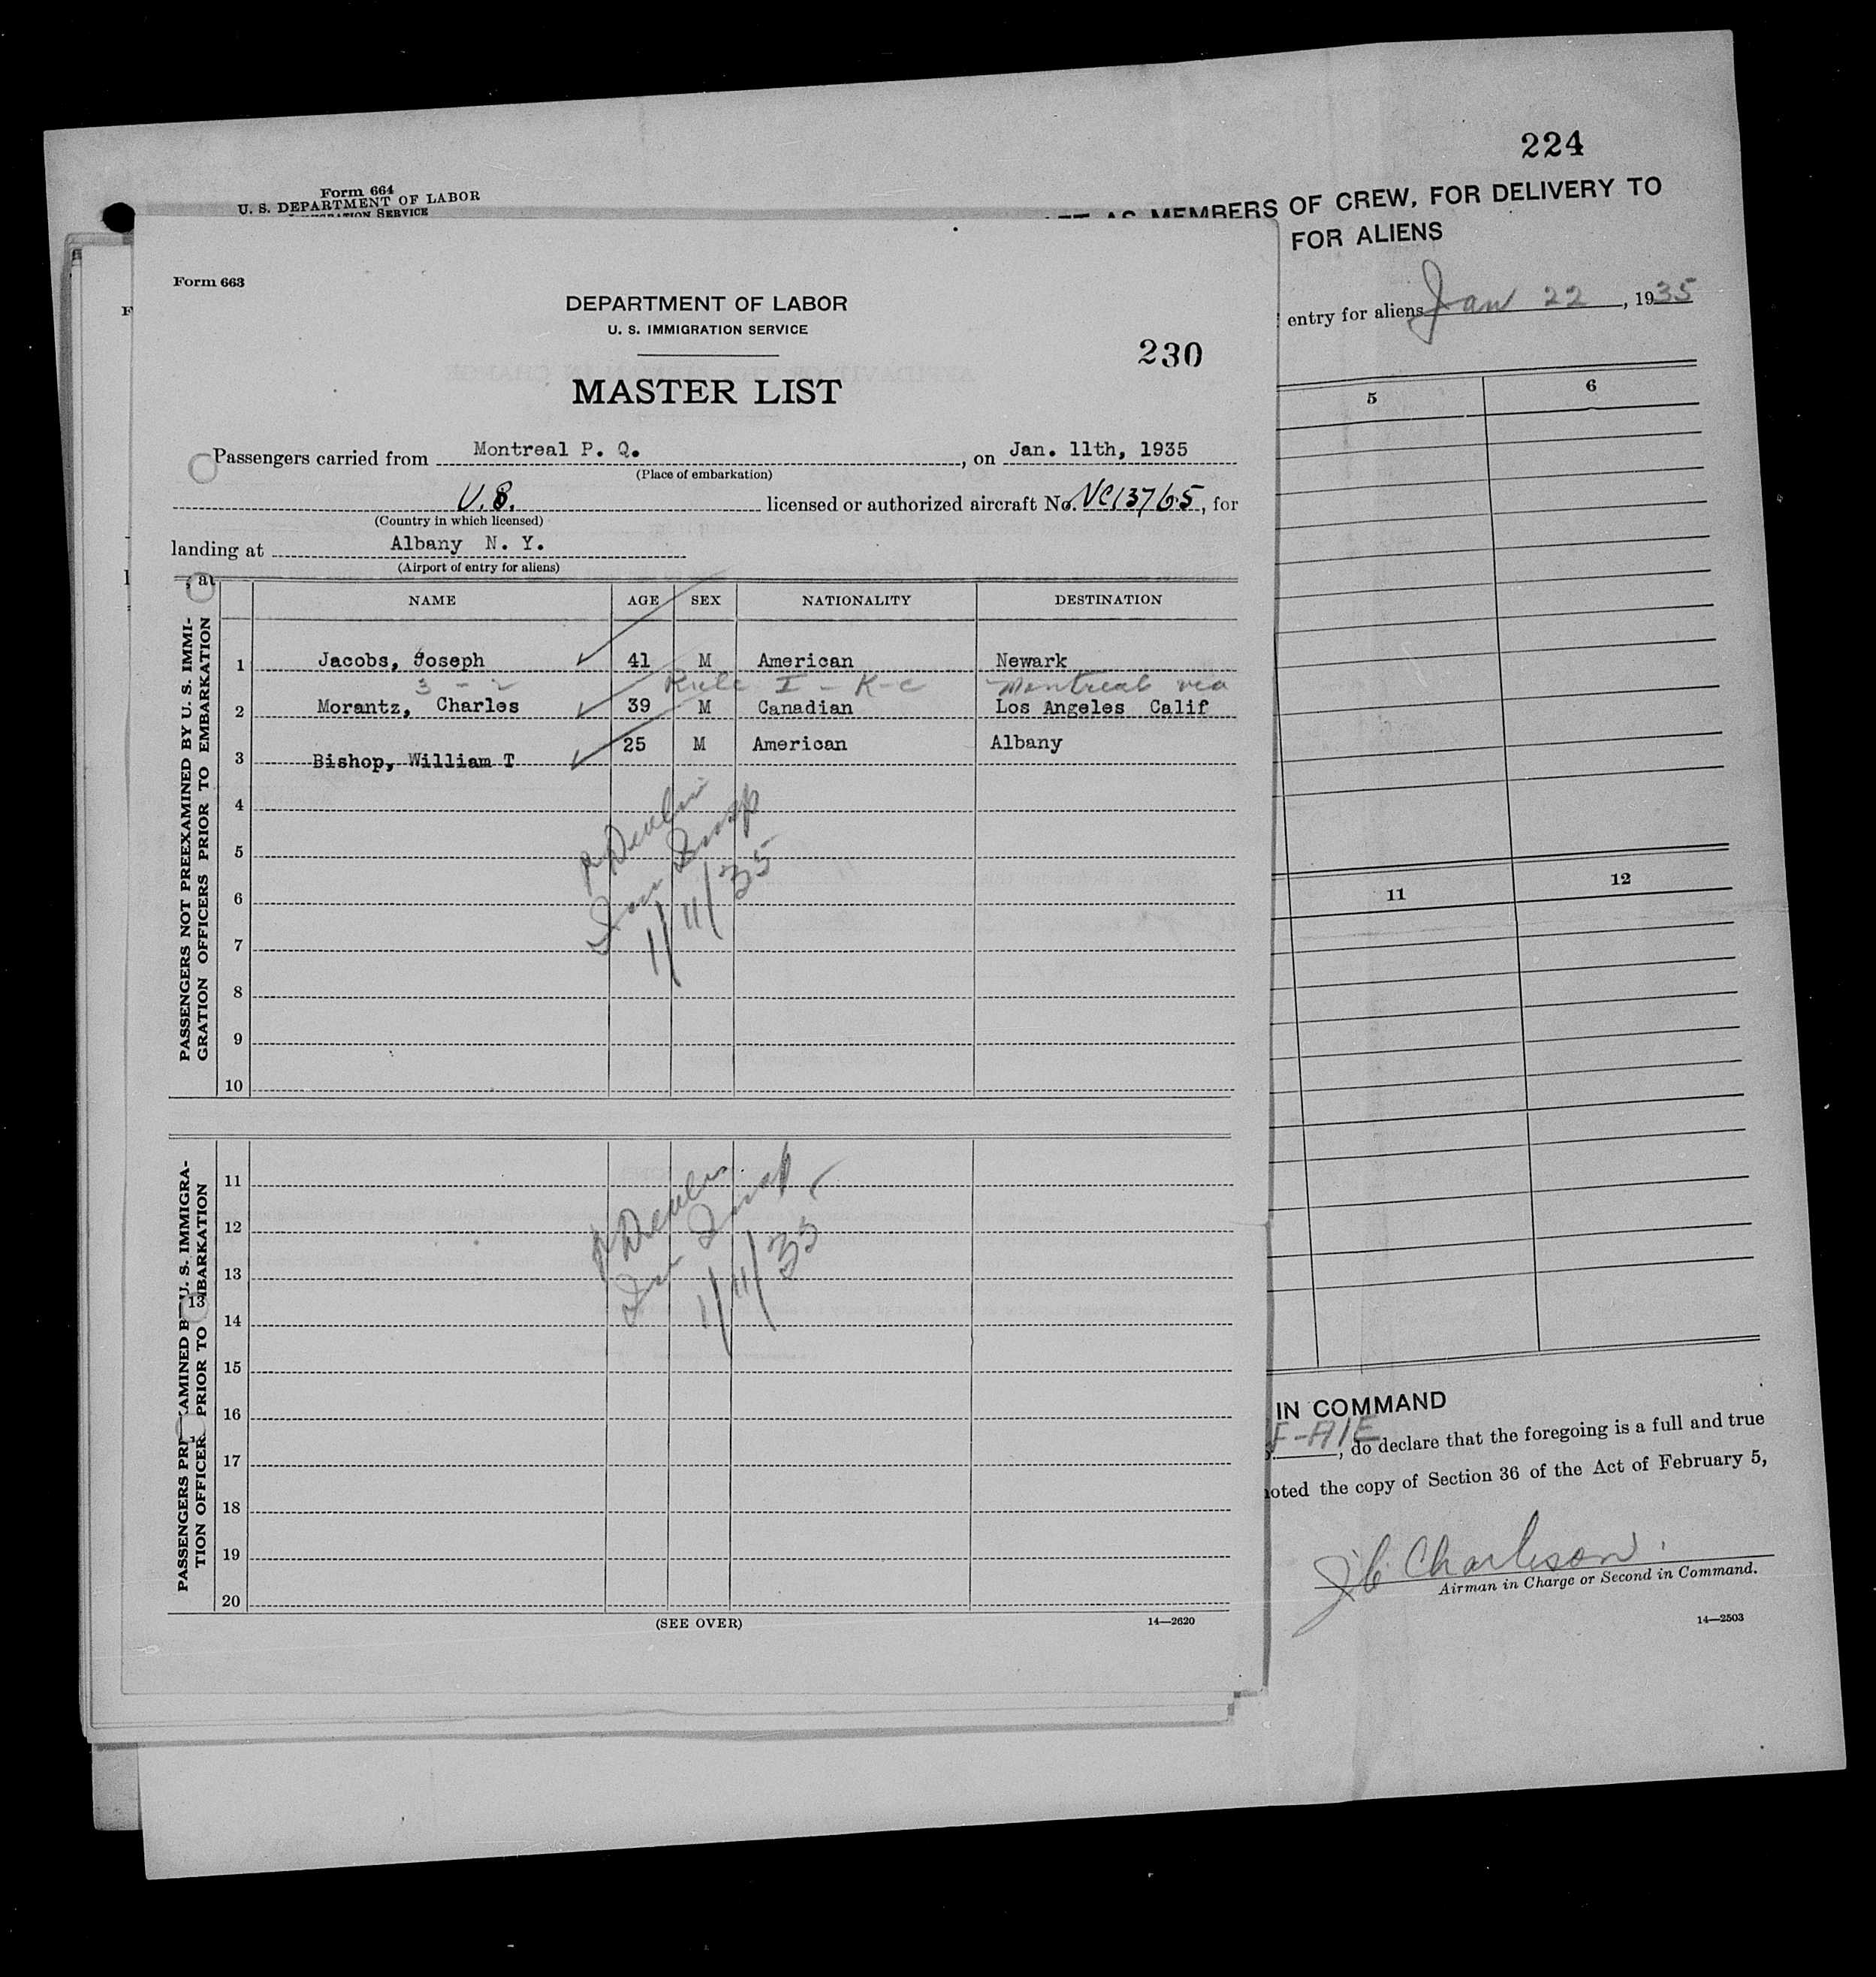 224
Form 664
U. S. DEPARTMENT OF LABOR
IMMIGRATION SERVICE
AS MEMBERS OF CREW, FOR DELIVERY TO
FOR ALIENS
entry for aliens Jan 22, 1935
5 6
11 12
IN COMMAND
F-AIE, do declare that the foregoing is a full and true
noted the copy of Section 36 of the Act of February 5,
J C Charleson.
Airman in Charge or Second in Command.
14—2503
Form 663
DEPARTMENT OF LABOR
U. S. IMMIGRATION SERVICE
230
MASTER LIST
Passengers carried from Montreal P. Q., on Jan. 11th, 1935
(Place of embarkation)
U.S. licensed or authorized aircraft No. NC13765, for
(Country in which licensed)
landing at Albany N. Y.
(Airport of entry for aliens)
, at
NAME AGE SEX NATIONALITY DESTINATION
PASSENGERS NOT PREEXAMINED BY U. S. IMMI-
GRATION OFFICERS PRIOR TO EMBARKATION
1 Jacobs, Joseph 41 M American Newark
3 - 2 Rule I - K-c Montreal via
2 Morantz, Charles 39 M Canadian Los Angeles Calif
3 Bishop, William T 25 M American Albany
4
5
6
7
8
9
10
R Devlin
Imm Insp
1/11/35
PASSENGERS PRE AMINED B U. S. IMMIGRA-
TION OFFICER PRIOR TO MBARKATION
13
11
12
13
14
15
16
17
18
19
20
R Devlin
Imm Insp
1/11/35
(SEE OVER)
14—2620